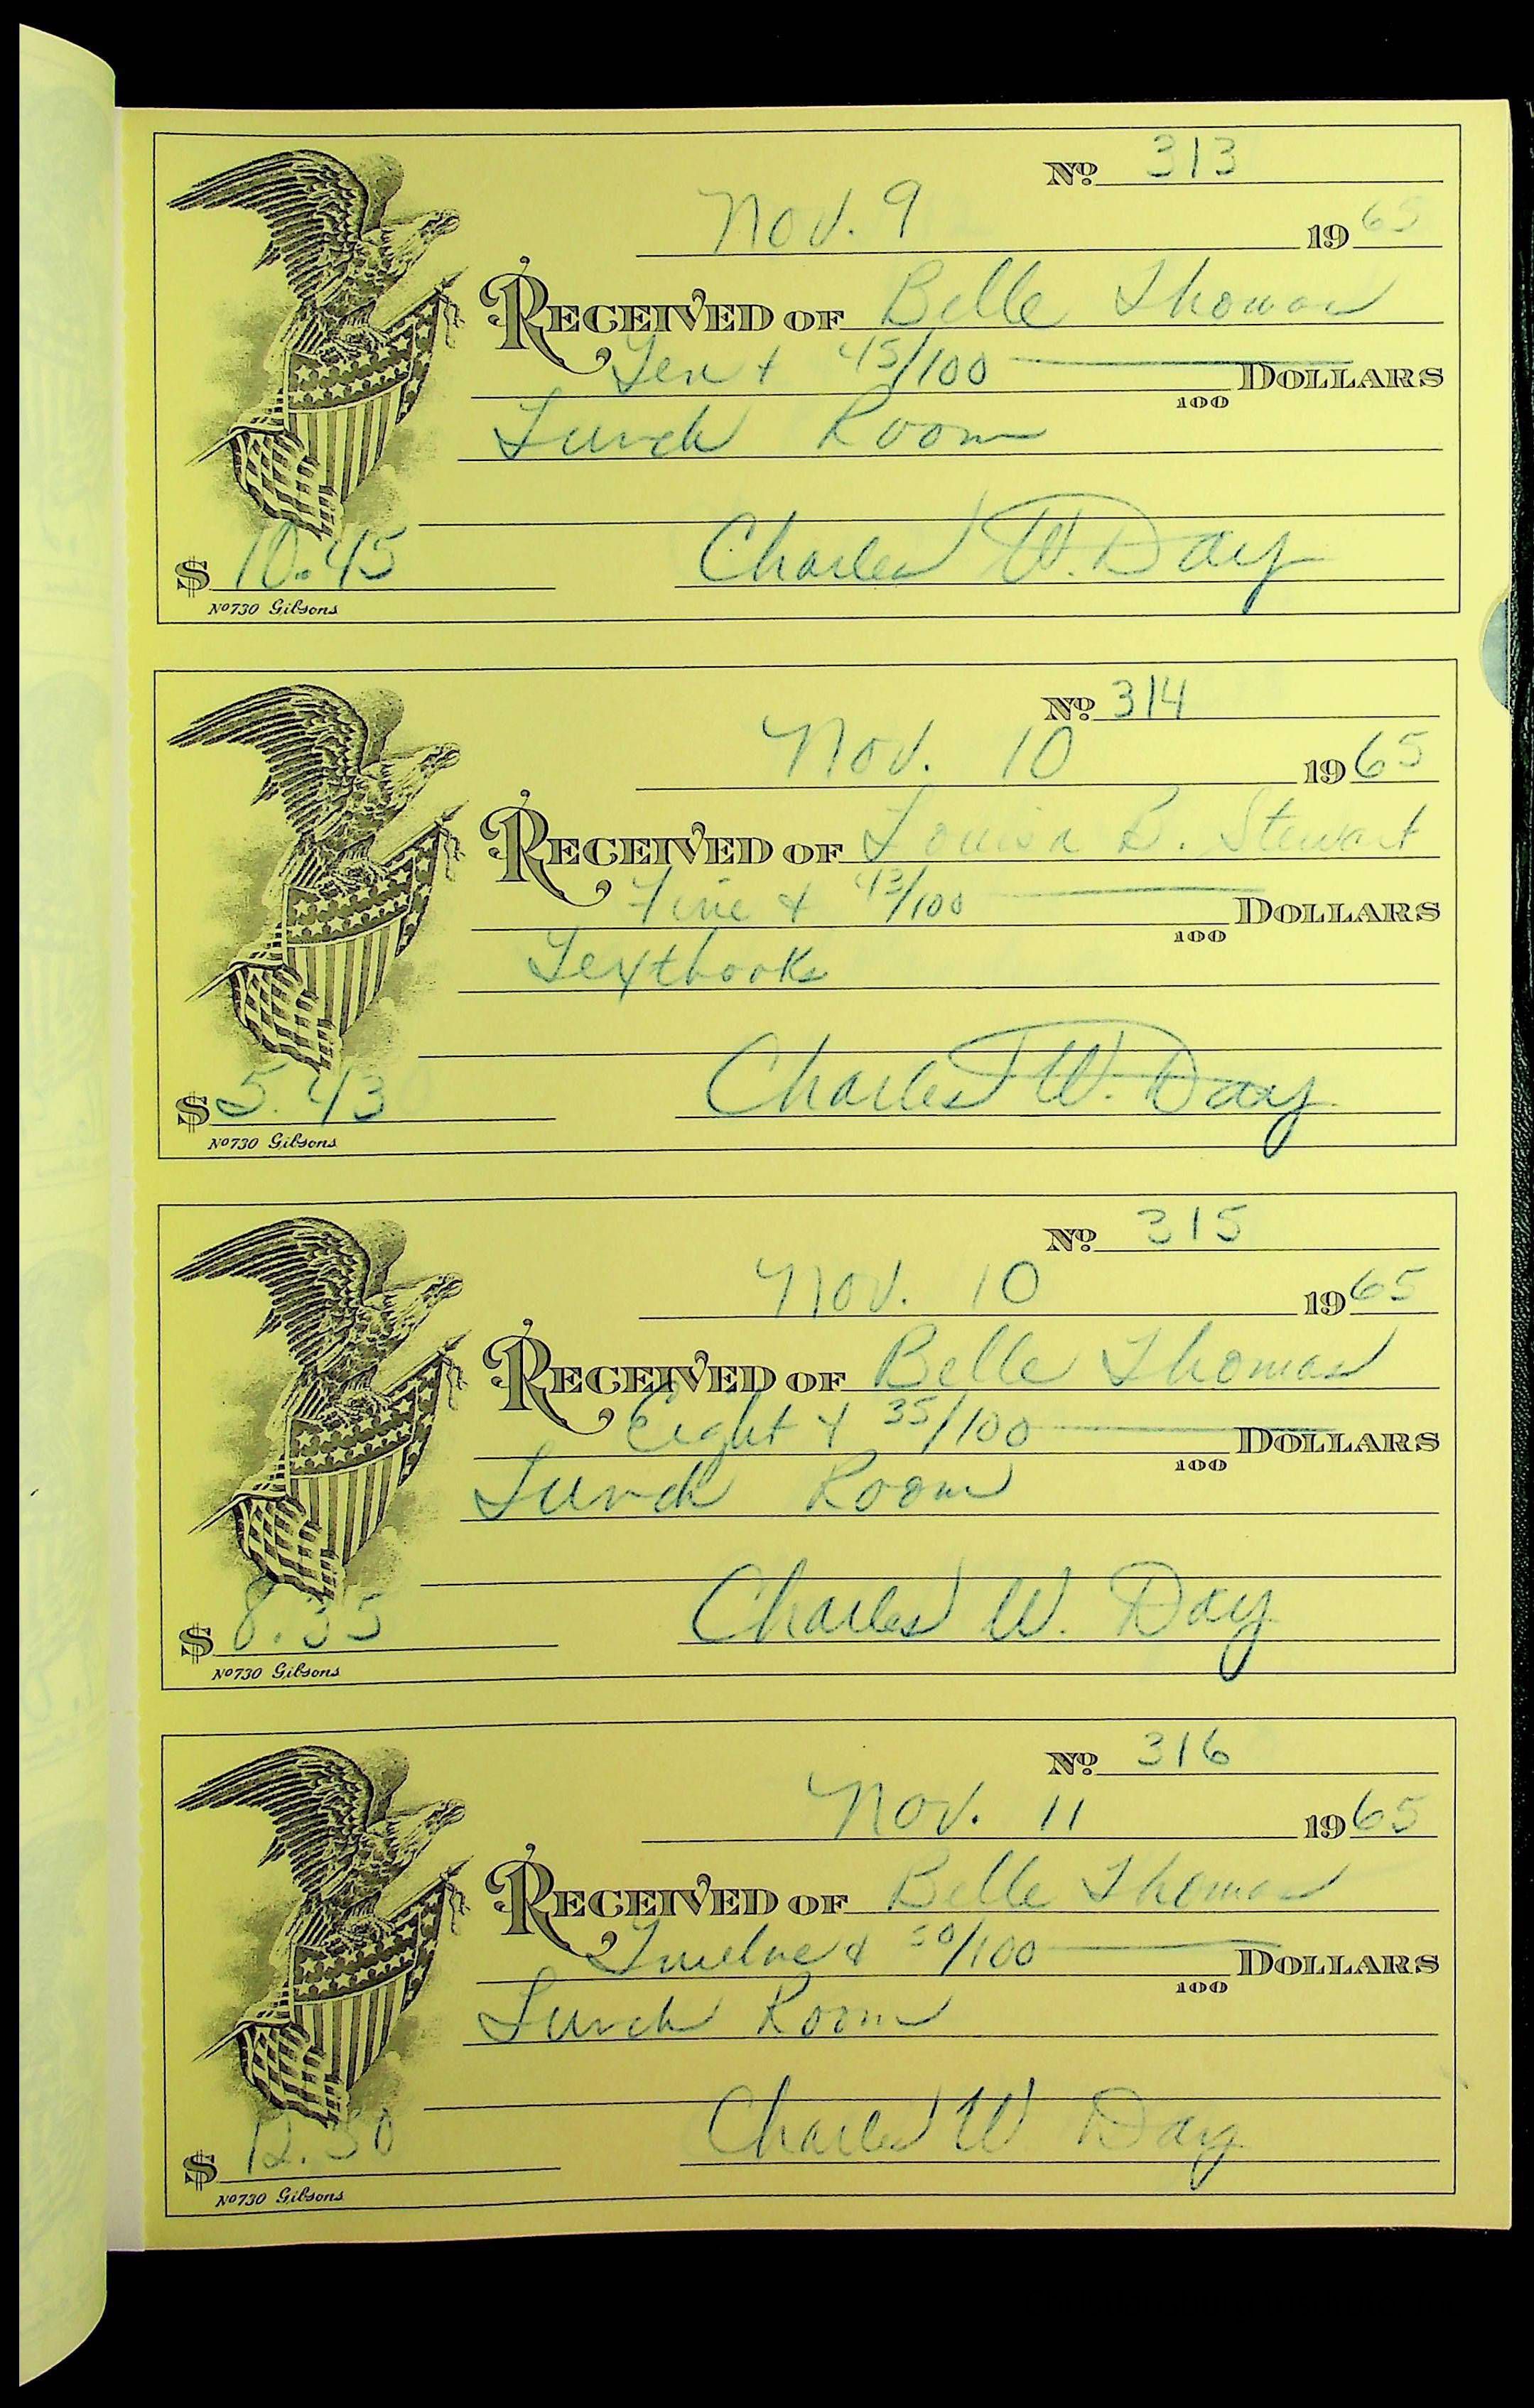 No. 313
Nov. 9 1965
RECEIVED OF Belle Thomas
Ten + 45/100 DOLLARS
100
Lunch Room
Charles W. Day
$ 10.45
No 730 Gibsons
No. 314
Nov. 10 1965
RECEIVED OF Louisa B. Stewart
Five + 43/100 DOLLARS
100
Textbooks
Charles W. Day
$ 5.43
No 730 Gibsons
No. 315
Nov. 10 1965
RECEIVED OF Belle Thomas
Eight + 35/100 DOLLARS
100
Lunch Room
Charles W. Day
$ 8.35
No 730 Gibsons
No. 316
Nov. 11 1965
RECEIVED OF Belle Thomas
Twelve + 50/100 DOLLARS
100
Lunch Room
Charles W Day
$ 12.50
No 730 Gibsons